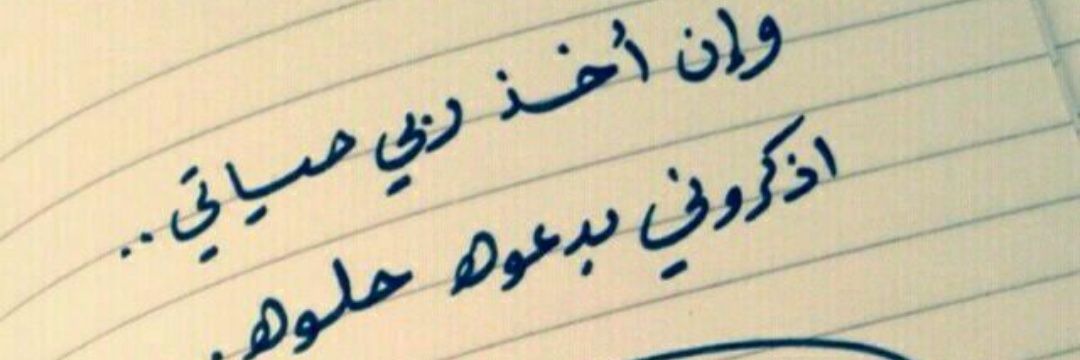 وإن أخذ ربي حياتي..
اذكروني بدعوه حلوه.